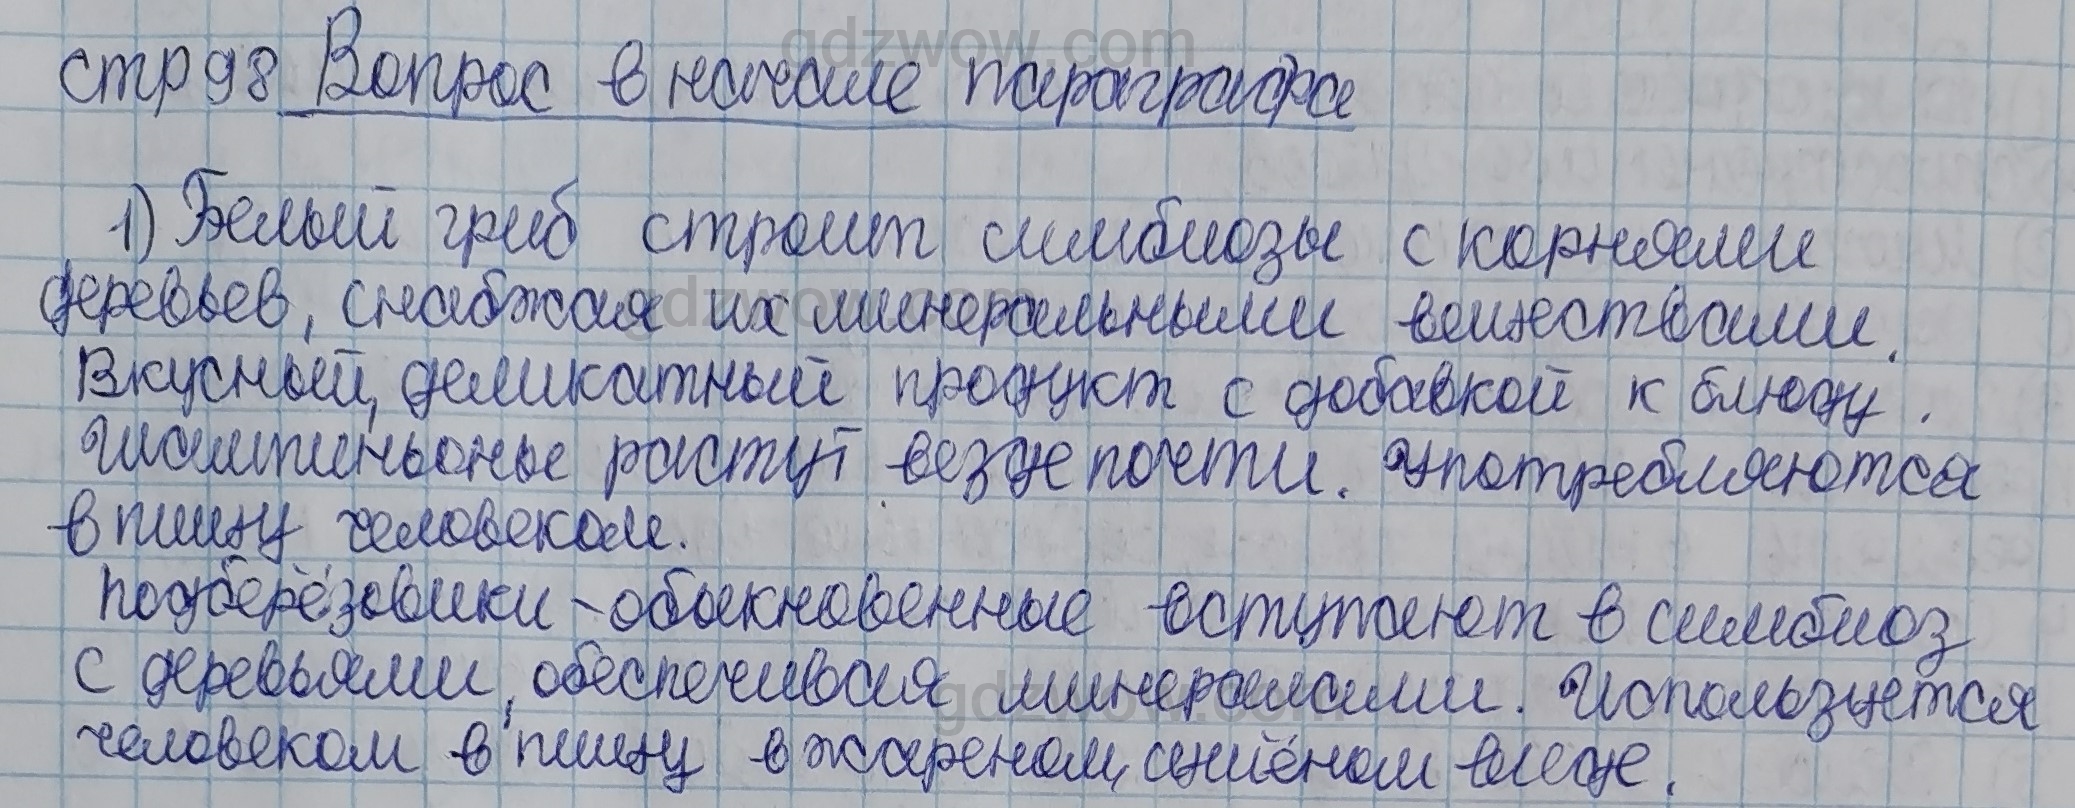 gdzwow.com
стр 98 Вопрос в начале параграфа
1) Белый гриб строит симбиозы с корнями
деревьев, снабжая их минеральными веществами.
gdzwow.com
Вкусный, деликатный продукт с добавкой к блюду.
Шампиньоны растут везде почти. Употребляются
в пищу человеком.
Подберёзовики - обыкновенные вступают в симбиоз
с деревьями, обеспечивая минералами. Используется
gdzwow.com
человеком в пищу в жареном, сушёном виде.